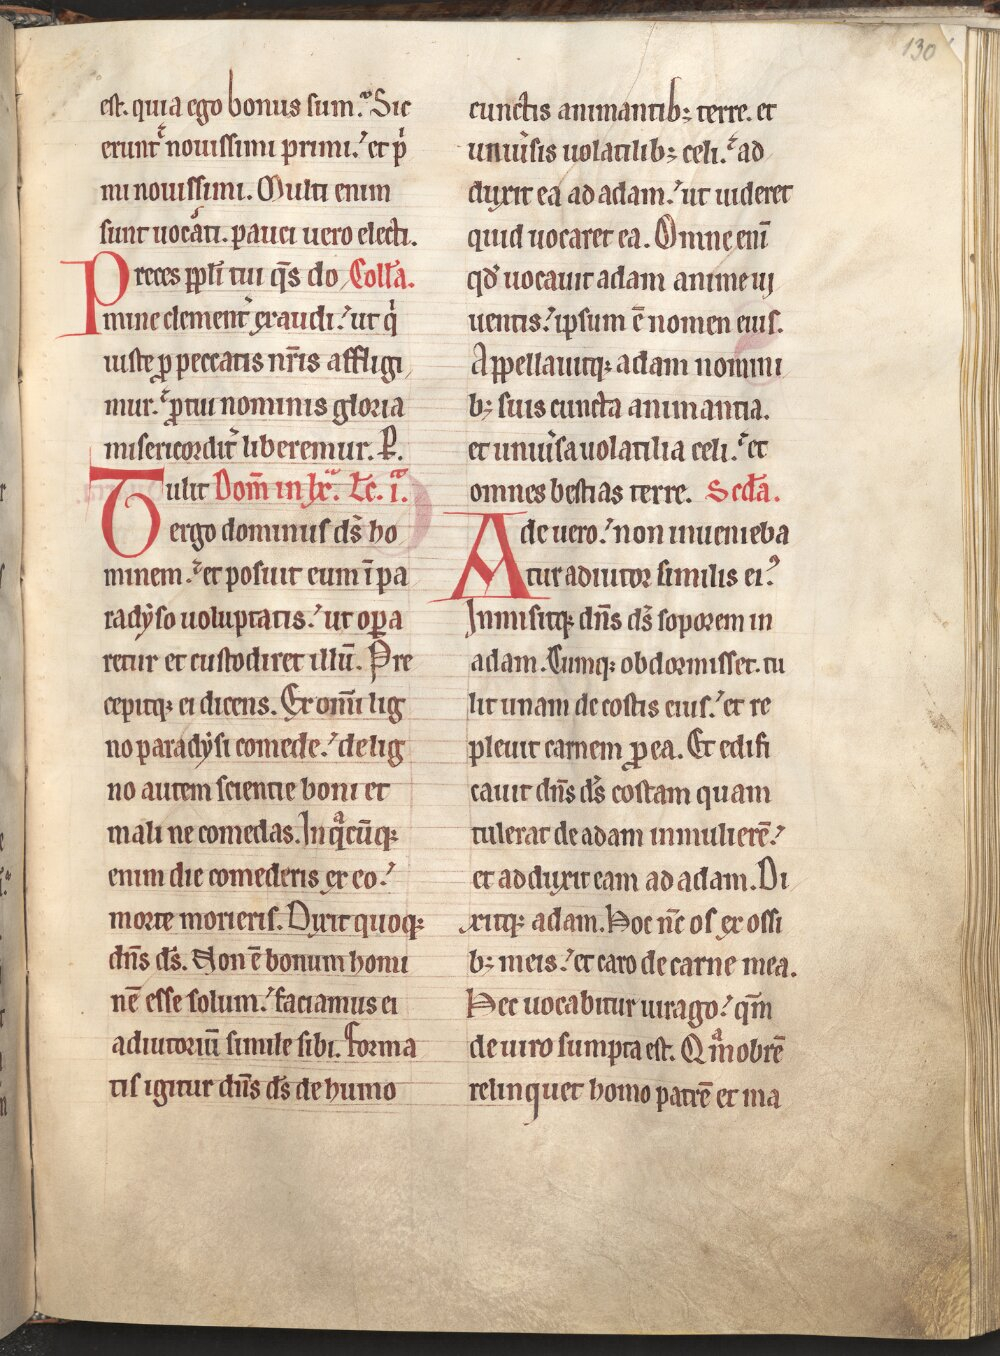 130
est. quia ego bonus sum. Sic
erunt nouissimi primi. et p̍
mi nouissimi. Multi enim
sunt uocati. pauci uero electi.
Preces ppl̄i tui q̄s do Coll̄a.
mine clement̾ exaudi. ut q̍
iuste ꝓ peccatis nr̄is affligi
mur. ꝓ tui nominis gloria
misericordit̾ liberemur. P.
Tulit Dom̄ in lx̄. Lc̄. i.
ergo dominus ds̄ ho
minem. et posuit eum ī pa
radẏso uoluptatis. ut oꝑa
retur et custodiret illū. Pre
cepitq; ei dicens. Ex om̄i lig
no paradẏsi comede. de lig
no autem scientie boni et
mali ne comedas. In qͣcūq;
enim die comederis ex eo.
morte morieris. Dixit quoq;
dn̄s ds̄. Non ē bonum homi
nē esse solum. faciamus ei
adiutoriū simile sibi. Forma
tis igitur dn̄s ds̄ de humo
cunctis animantib; terre. et
uniu̾sis uolatilib; celi. ad
duxit ea ad adam. ut uideret
quid uocaret ea. Omne enī
qd̾ uocauit adam anime ui
uentis. ipsum ē nomen eius.
Appellauitq; adam nomini
b; suis cuncta animantia.
et uniu̾sa uolatilia celi. et
omnes bestias terre. Scd̄a.
Ade uero. non inuenieba
tur adiutor similis ei.
Inmisitq; dn̄s ds̄ soporem in
adam. Cumq; obdormisset. tu
lit unam de costis eius. et re
pleuit carnem ꝓ ea. Et edifi
cauit dn̄s ds̄ costam quam
tulerat de adam in mulierē.
et adduxit eam ad adam. Di
xitq; adam. Hoc nc̄ os ex ossi
b; meis. et caro de carne mea.
Hec uocabitur uirago. qm̄
de uiro sumpta est. Qͣm obrē
relinquet homo patrē et ma